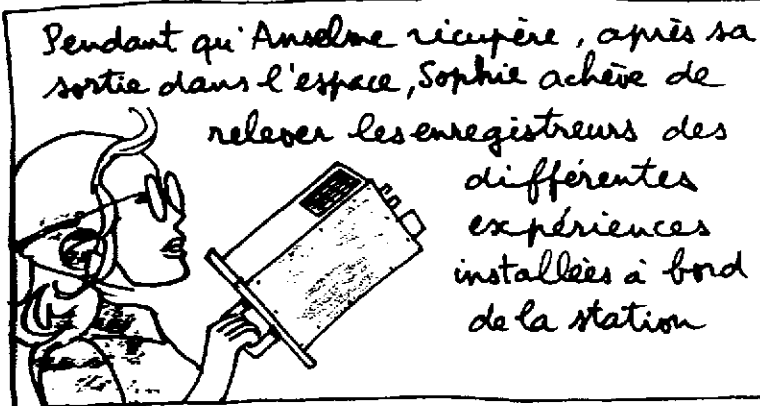 Pendant qu'Anselme récupère, après sa
sortie dans l'espace, Sophie achève de
relever les enregistreurs des
différentes
expériences
installées à bord
de la station